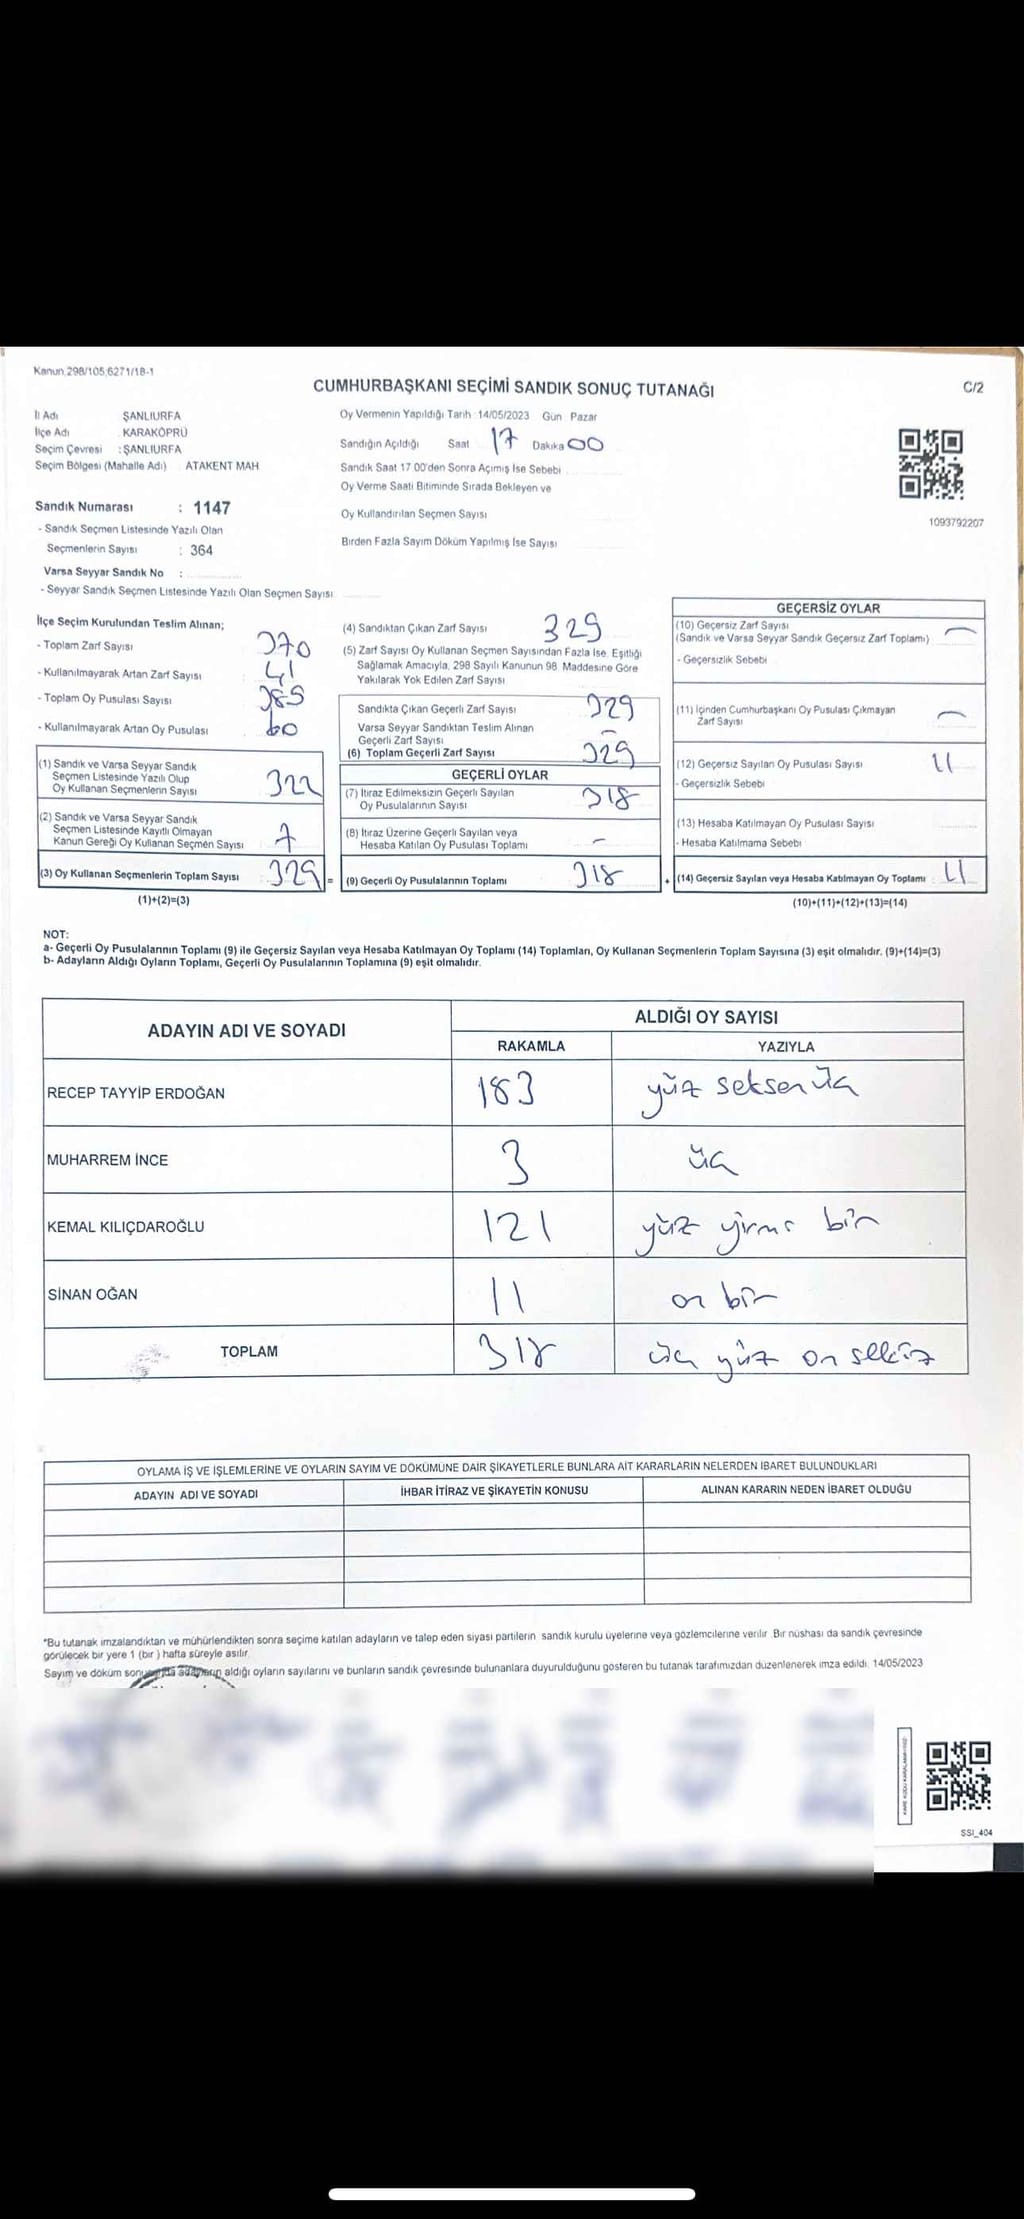 Kanun.298/105,6271/18-1
CUMHURBAŞKANI SEÇİMİ SANDIK SONUÇ TUTANAĞI
C/2
İl Adı ŞANLIURFA
İlçe Adı KARAKÖPRÜ
Seçim Çevresi : ŞANLIURFA
Seçim Bölgesi (Mahalle Adı) ATAKENT MAH
Oy Vermenin Yapıldığı Tarih 14/05/2023 Gün Pazar
Sandığın Açıldığı Saat 17 Dakika 00
Sandık Saat 17 00'den Sonra Açımış İse Sebebi
Oy Verme Saati Bitiminde Sırada Bekleyen ve
Oy Kullandırılan Seçmen Sayısı
Birden Fazla Sayım Döküm Yapılmış İse Sayısı
1093792207
Sandık Numarası : 1147
- Sandık Seçmen Listesinde Yazılı Olan
Seçmenlerin Sayısı : 364
Varsa Seyyar Sandık No :
- Seyyar Sandık Seçmen Listesinde Yazılı Olan Seçmen Sayısı
İlçe Seçim Kurulundan Teslim Alınan;
- Toplam Zarf Sayısı 370
- Kullanılmayarak Artan Zarf Sayısı 41
- Toplam Oy Pusulası Sayısı 385
- Kullanılmayarak Artan Oy Pusulası 60
(1) Sandık ve Varsa Seyyar Sandık
Seçmen Listesinde Yazılı Olup
Oy Kullanan Seçmenlerin Sayısı 322
(2) Sandık ve Varsa Seyyar Sandık
Seçmen Listesinde Kayıtlı Olmayan
Kanun Gereği Oy Kullanan Seçmen Sayısı 7
(3) Oy Kullanan Seçmenlerin Toplam Sayısı 329 =
(1)+(2)=(3)
(4) Sandıktan Çıkan Zarf Sayısı 329
(5) Zarf Sayısı Oy Kullanan Seçmen Sayısından Fazla İse, Eşitliği
Sağlamak Amacıyla, 298 Sayılı Kanunun 98 Maddesine Göre
Yakılarak Yok Edilen Zarf Sayısı
Sandıkta Çıkan Geçerli Zarf Sayısı 329
Varsa Seyyar Sandıktan Teslim Alınan
Geçerli Zarf Sayısı -
(6) Toplam Geçerli Zarf Sayısı 329
GEÇERLİ OYLAR
(7) İtiraz Edilmeksizin Geçerli Sayılan
Oy Pusulalarının Sayısı 318
(8) İtiraz Üzerine Geçerli Sayılan veya
Hesaba Katılan Oy Pusulası Toplamı -
(9) Geçerli Oy Pusulalarının Toplamı 318 +
GEÇERSİZ OYLAR
(10) Geçersiz Zarf Sayısı
(Sandık ve Varsa Seyyar Sandık Geçersiz Zarf Toplamı) -
- Geçersizlik Sebebi
(11) İçinden Cumhurbaşkanı Oy Pusulası Çıkmayan
Zarf Sayısı -
(12) Geçersiz Sayılan Oy Pusulası Sayısı 11
- Geçersizlik Sebebi
(13) Hesaba Katılmayan Oy Pusulası Sayısı
- Hesaba Katılmama Sebebi
(14) Geçersiz Sayılan veya Hesaba Katılmayan Oy Toplamı 11
(10)+(11)+(12)+(13)=(14)
NOT:
a- Geçerli Oy Pusulalarının Toplamı (9) ile Geçersiz Sayılan veya Hesaba Katılmayan Oy Toplamı (14) Toplamları, Oy Kullanan Seçmenlerin Toplam Sayısına (3) eşit olmalıdır. (9)+(14)=(3)
b- Adayların Aldığı Oyların Toplamı, Geçerli Oy Pusulalarının Toplamına (9) eşit olmalıdır.
ADAYIN ADI VE SOYADI
ALDIĞI OY SAYISI
RAKAMLA YAZIYLA
RECEP TAYYİP ERDOĞAN 183 yüz seksen üç
MUHARREM İNCE 3 üç
KEMAL KILIÇDAROĞLU 121 yüz yirmi bir
SİNAN OĞAN 11 on bir
TOPLAM 318 üç yüz on sekiz
OYLAMA İŞ VE İŞLEMLERİNE VE OYLARIN SAYIM VE DÖKÜMÜNE DAİR ŞİKAYETLERLE BUNLARA AİT KARARLARIN NELERDEN İBARET BULUNDUKLARI
ADAYIN ADI VE SOYADI İHBAR İTİRAZ VE ŞİKAYETİN KONUSU ALINAN KARARIN NEDEN İBARET OLDUĞU
*Bu tutanak imzalandıktan ve mühürlendikten sonra seçime katılan adayların ve talep eden siyasi partilerin sandık kurulu üyelerine veya gözlemcilerine verilir. Bir nüshası da sandık çevresinde
görülecek bir yere 1 (bir ) hafta süreyle asılır.
Sayım ve döküm sonucunda adayların aldığı oyların sayılarını ve bunların sandık çevresinde bulunanlara duyurulduğunu gösteren bu tutanak tarafımızdan düzenlenerek imza edildi. 14/05/2023
SSI_404